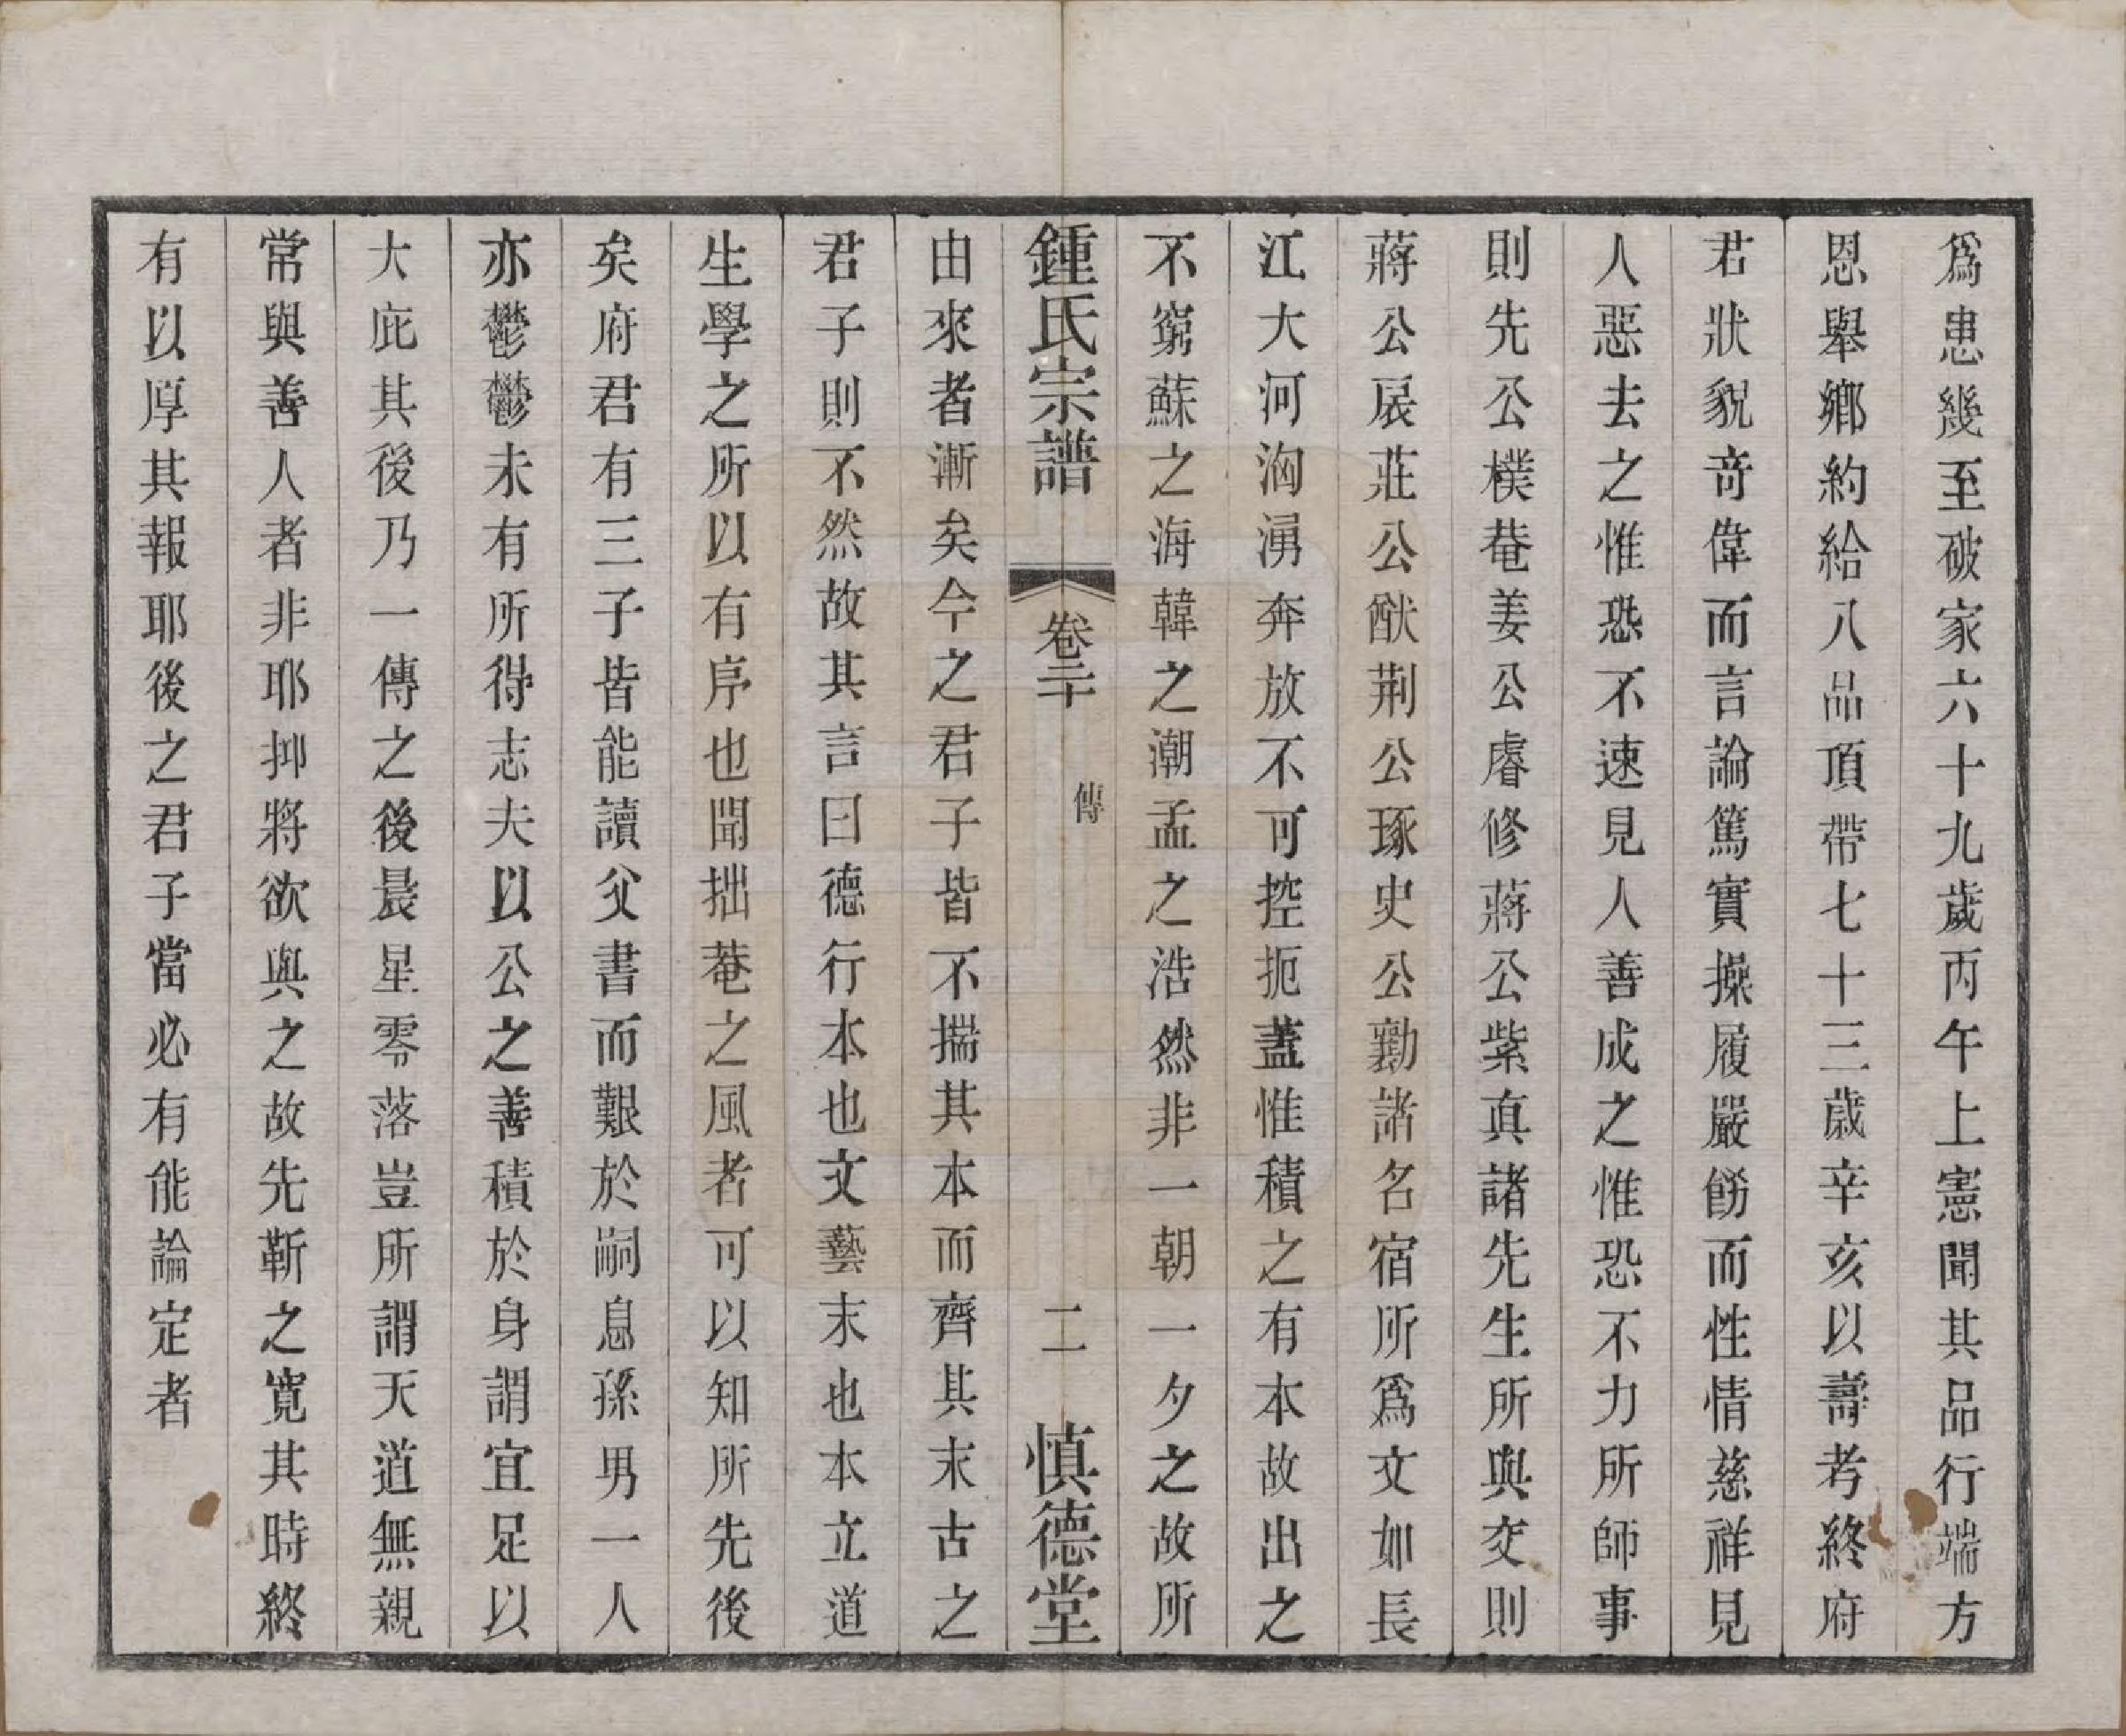 爲患幾至破家六十九歲丙午上憲聞其品行端方
恩舉鄉約給八品頂帶七十三歲辛亥以壽考終府
君狀貌奇偉而言論篤實操履嚴飭而性情慈祥見
人惡去之惟恐不速見人善成之惟恐不力所師事
則先公樸菴姜公睿修蔣公紫真諸先生所與交則
蔣公扆莊公猷荆公琢史公勷諸名宿所爲文如長
江大河洶湧奔放不可控扼蓋惟積之有本故出之
不窮蘇之海韓之潮孟之浩然非一朝一夕之故所
鍾氏宗譜 卷二十 傳 二 慎德堂
由來者漸矣今之君子皆不揣其本而齊其末古之
君子則不然故其言曰德行本也文藝末也本立道
生學之所以有序也聞拙菴之風者可以知所先後
矣府君有三子皆能讀父書而艱於嗣息孫男一人
亦鬱鬱未有所得志夫以公之善積於身謂宜足以
大庇其後乃一傳之後晨星零落豈所謂天道無親
常與善人者非耶抑將欲與之故先靳之寬其時終
有以厚其報耶後之君子當必有能論定者